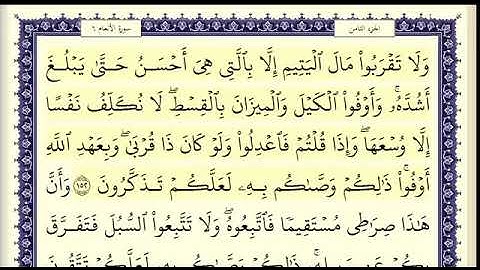 الجزء الثامن
سورة الأنعام ٦
وَلَا تَقْرَبُوا۟ مَالَ ٱلْيَتِيمِ إِلَّا بِٱلَّتِى هِىَ أَحْسَنُ حَتَّىٰ يَبْلُغَ
أَشُدَّهُۥ ۖ وَأَوْفُوا۟ ٱلْكَيْلَ وَٱلْمِيزَانَ بِٱلْقِسْطِ ۖ لَا نُكَلِّفُ نَفْسًا
إِلَّا وُسْعَهَا ۖ وَإِذَا قُلْتُمْ فَٱعْدِلُوا۟ وَلَوْ كَانَ ذَا قُرْبَىٰ ۖ وَبِعَهْدِ ٱللَّهِ
أَوْفُوا۟ ۚ ذَٰلِكُمْ وَصَّىٰكُم بِهِۦ لَعَلَّكُمْ تَذَكَّرُونَ ١٥٢ وَأَنَّ
هَٰذَا صِرَٰطِى مُسْتَقِيمًا فَٱتَّبِعُوهُ ۖ وَلَا تَتَّبِعُوا۟ ٱلسُّبُلَ فَتَفَرَّقَ
بِكُمْ عَن سَبِيلِهِۦ ۚ ذَٰلِكُمْ وَصَّىٰكُم بِهِۦ لَعَلَّكُمْ تَتَّقُونَ